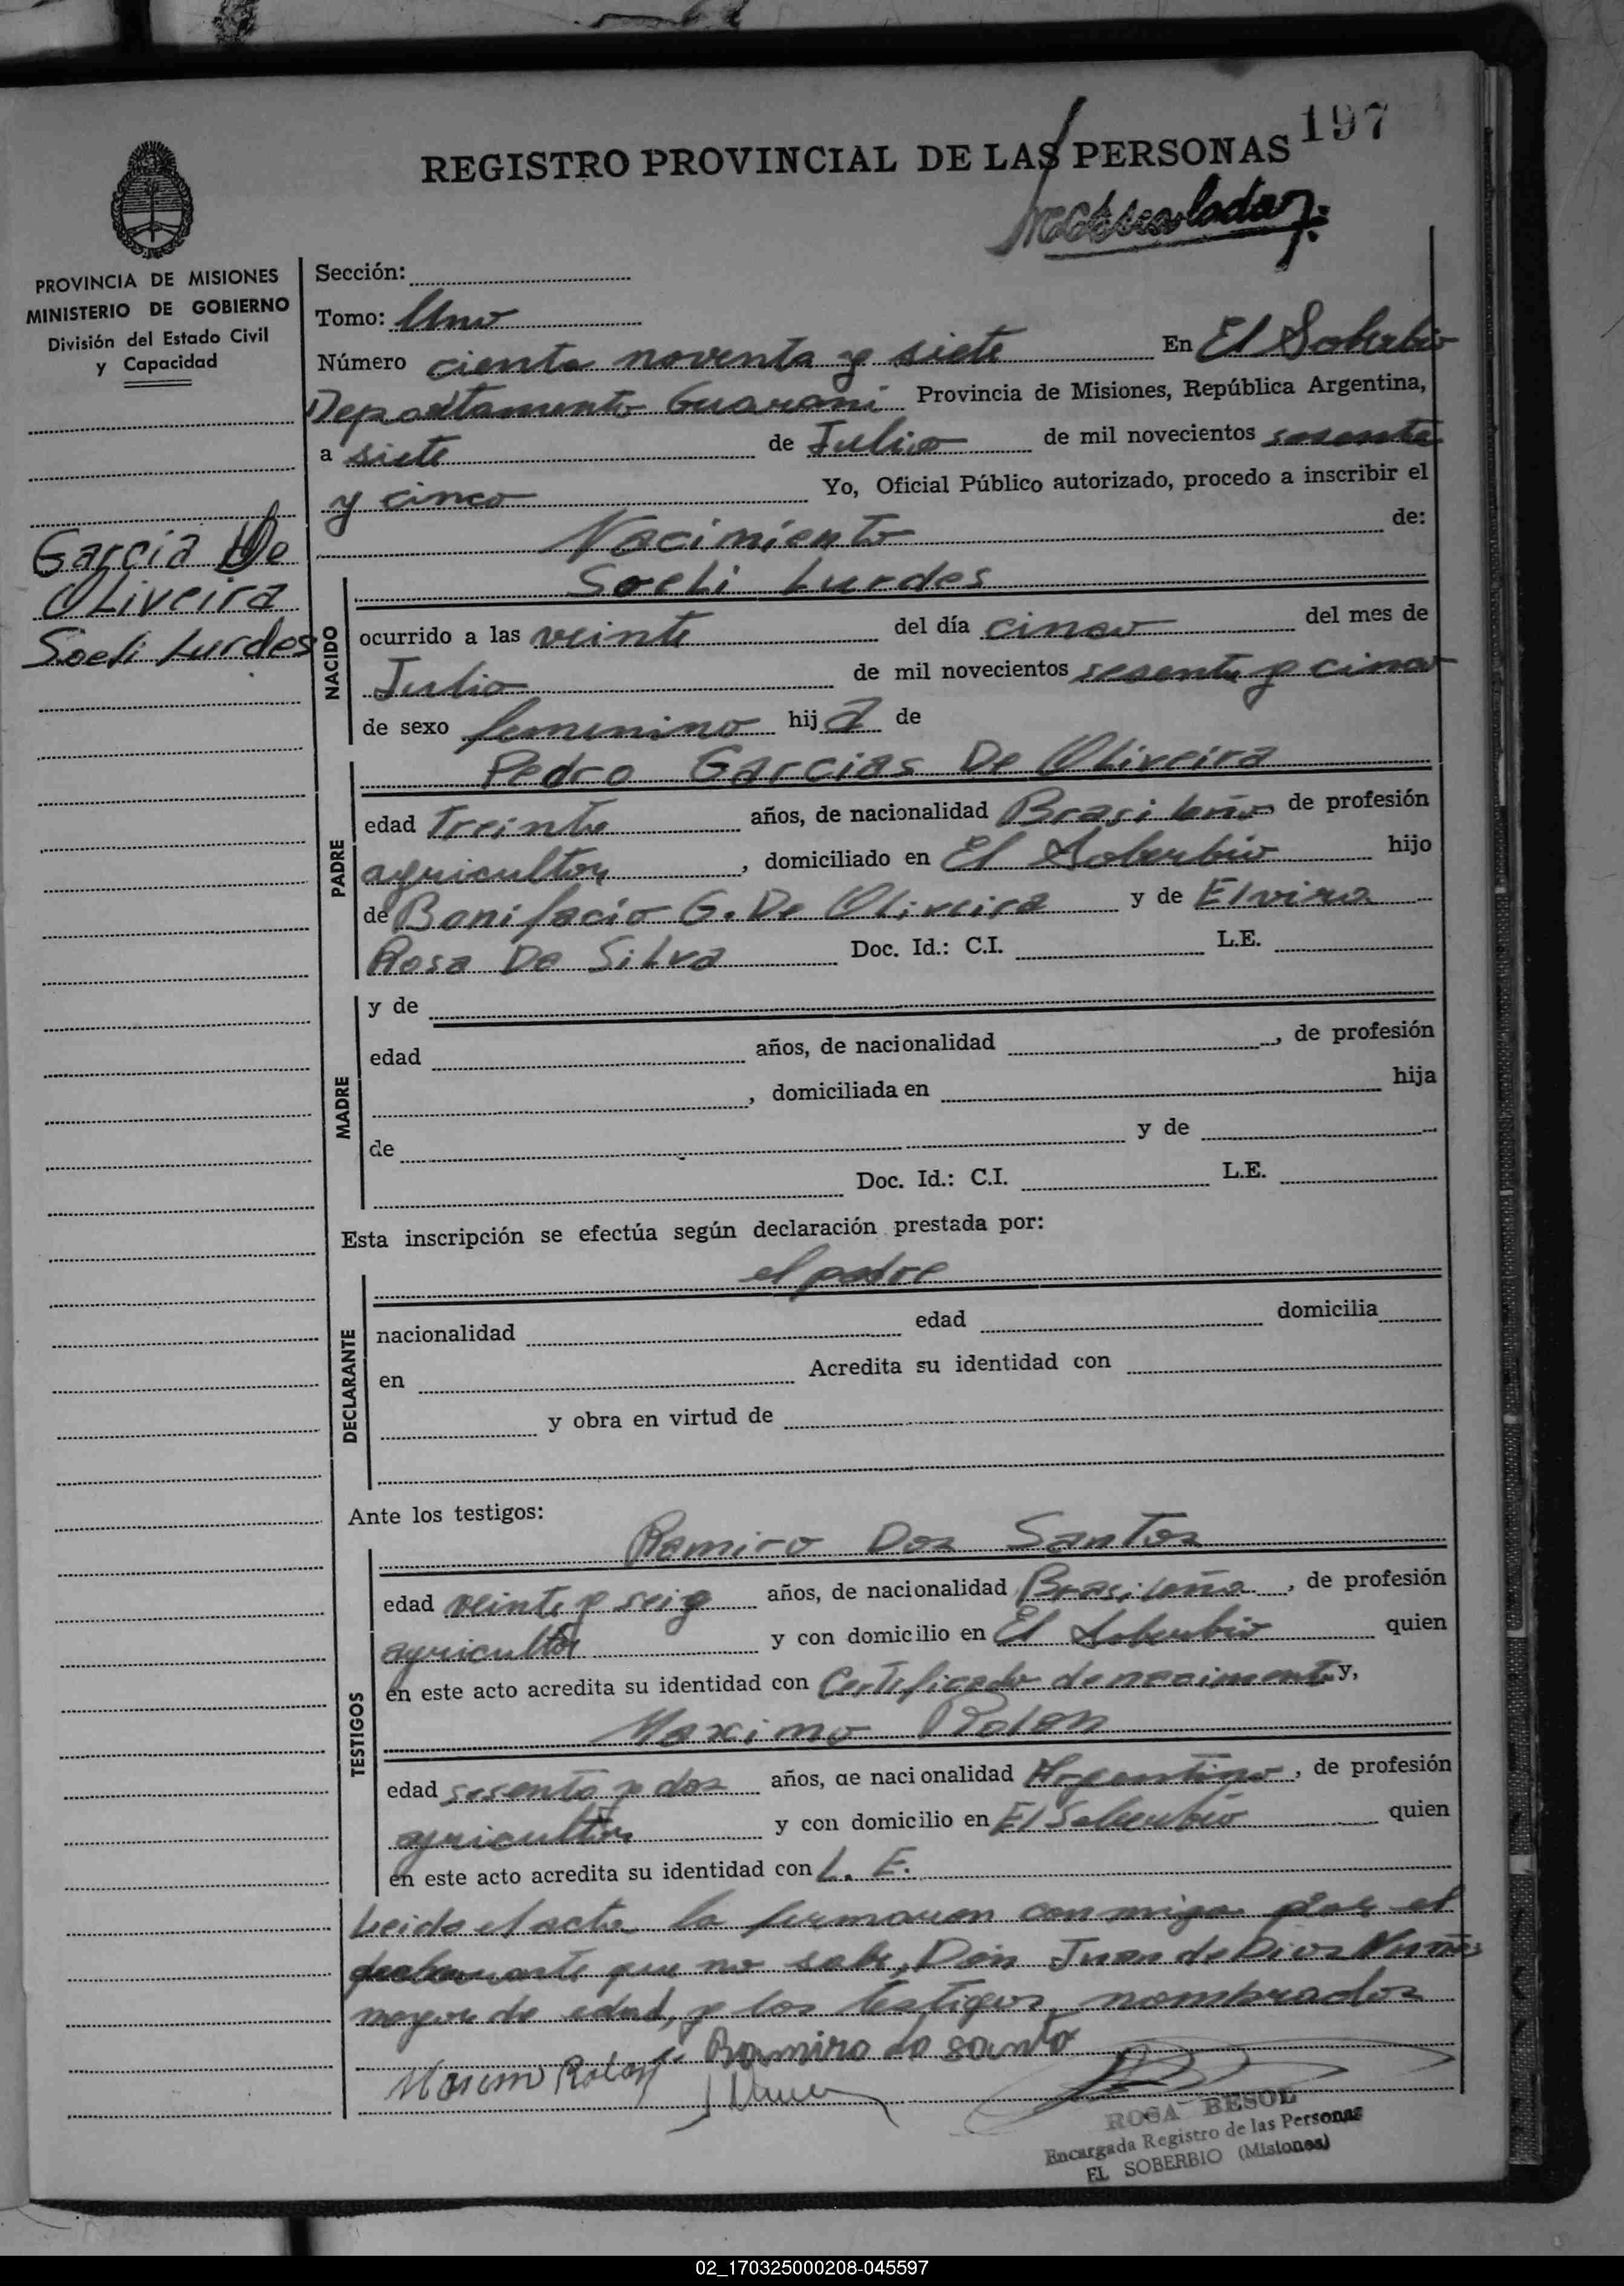 197
REGISTRO PROVINCIAL DE LAS PERSONAS
PROVINCIA DE MISIONES
MINISTERIO DE GOBIERNO
División del Estado Civil
y Capacidad
Sección:
Tomo: Uno
Número ciento noventa y siete En El Soberbio
Departamento Guarani Provincia de Misiones, República Argentina,
a siete de Julio de mil novecientos sesenta
y cinco Yo, Oficial Público autorizado, procedo a inscribir el
Nacimiento de:
Garcia De
Oliveira
Soeli Lurdes
NACIDO
Soeli Lurdes
ocurrido a las veinte del día cinco del mes de
Julio de mil novecientos sesenta y cinco
de sexo femenino hija de
PADRE
Pedro Garcias De Oliveira
edad Treinta años, de nacionalidad Brasileño de profesión
agricultor, domiciliado en El Soberbio hijo
de Bonifacio G. De Oliveira y de Elvira
Rosa De Silva Doc. Id.: C.I. L.E.
MADRE
y de
edad años, de nacionalidad , de profesión
, domiciliada en hija
de y de
Doc. Id.: C.I. L.E.
Esta inscripción se efectúa según declaración prestada por:
DECLARANTE
el padre
nacionalidad edad domicilia
en Acredita su identidad con
y obra en virtud de
Ante los testigos:
TESTIGOS
Ramiro Dos Santos
edad veinte y seis años, de nacionalidad Brasileña, de profesión
agricultor y con domicilio en El Soberbio quien
en este acto acredita su identidad con Certificado de nacimento y,
Maximo Rolon
edad sesenta y dos años, de nacionalidad Argentino, de profesión
agricultor y con domicilio en El Soberbio quien
en este acto acredita su identidad con L. E.
Leida el acta la firmaron conmigo por el
declarante que no sabe, Don Juan de Dios
mayor de edad, y los testigos nombrados
Ramiro do santo
Rolon
ROSA BESOL
Encargada Registro de las Personas
EL SOBERBIO (Misiones)
02_170325000208-045597